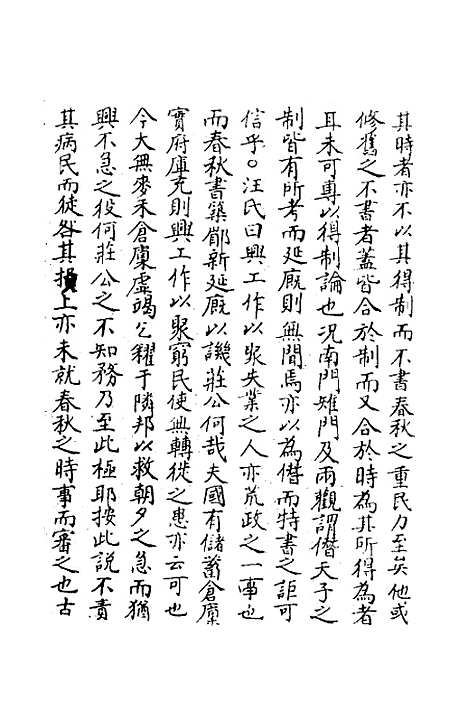 其時者亦不以其得制而不書春秋之重民力至矣他或
修舊之不書者蓋皆合於制而又合於時為其所得為者
耳未可專以得制論也況南門雉門及兩觀謂僭天子之
制皆有所考而延廐則無聞焉亦以為僭而特書之詎可
信乎○汪氏曰興工作以聚失業之人亦荒政之一事也
而春秋書築郿新延廐以譏莊公何哉夫國有儲蓄倉廩
實府庫充則興工作以聚窮民使無轉徙之患亦云可也
今大無麥禾倉廩虛竭乞糴于隣邦以救朝夕之急而猶
興不急之役何莊公之不知務乃至此極耶按此說不責
其病民而徒咎其損上亦未就春秋之時事而審之也古